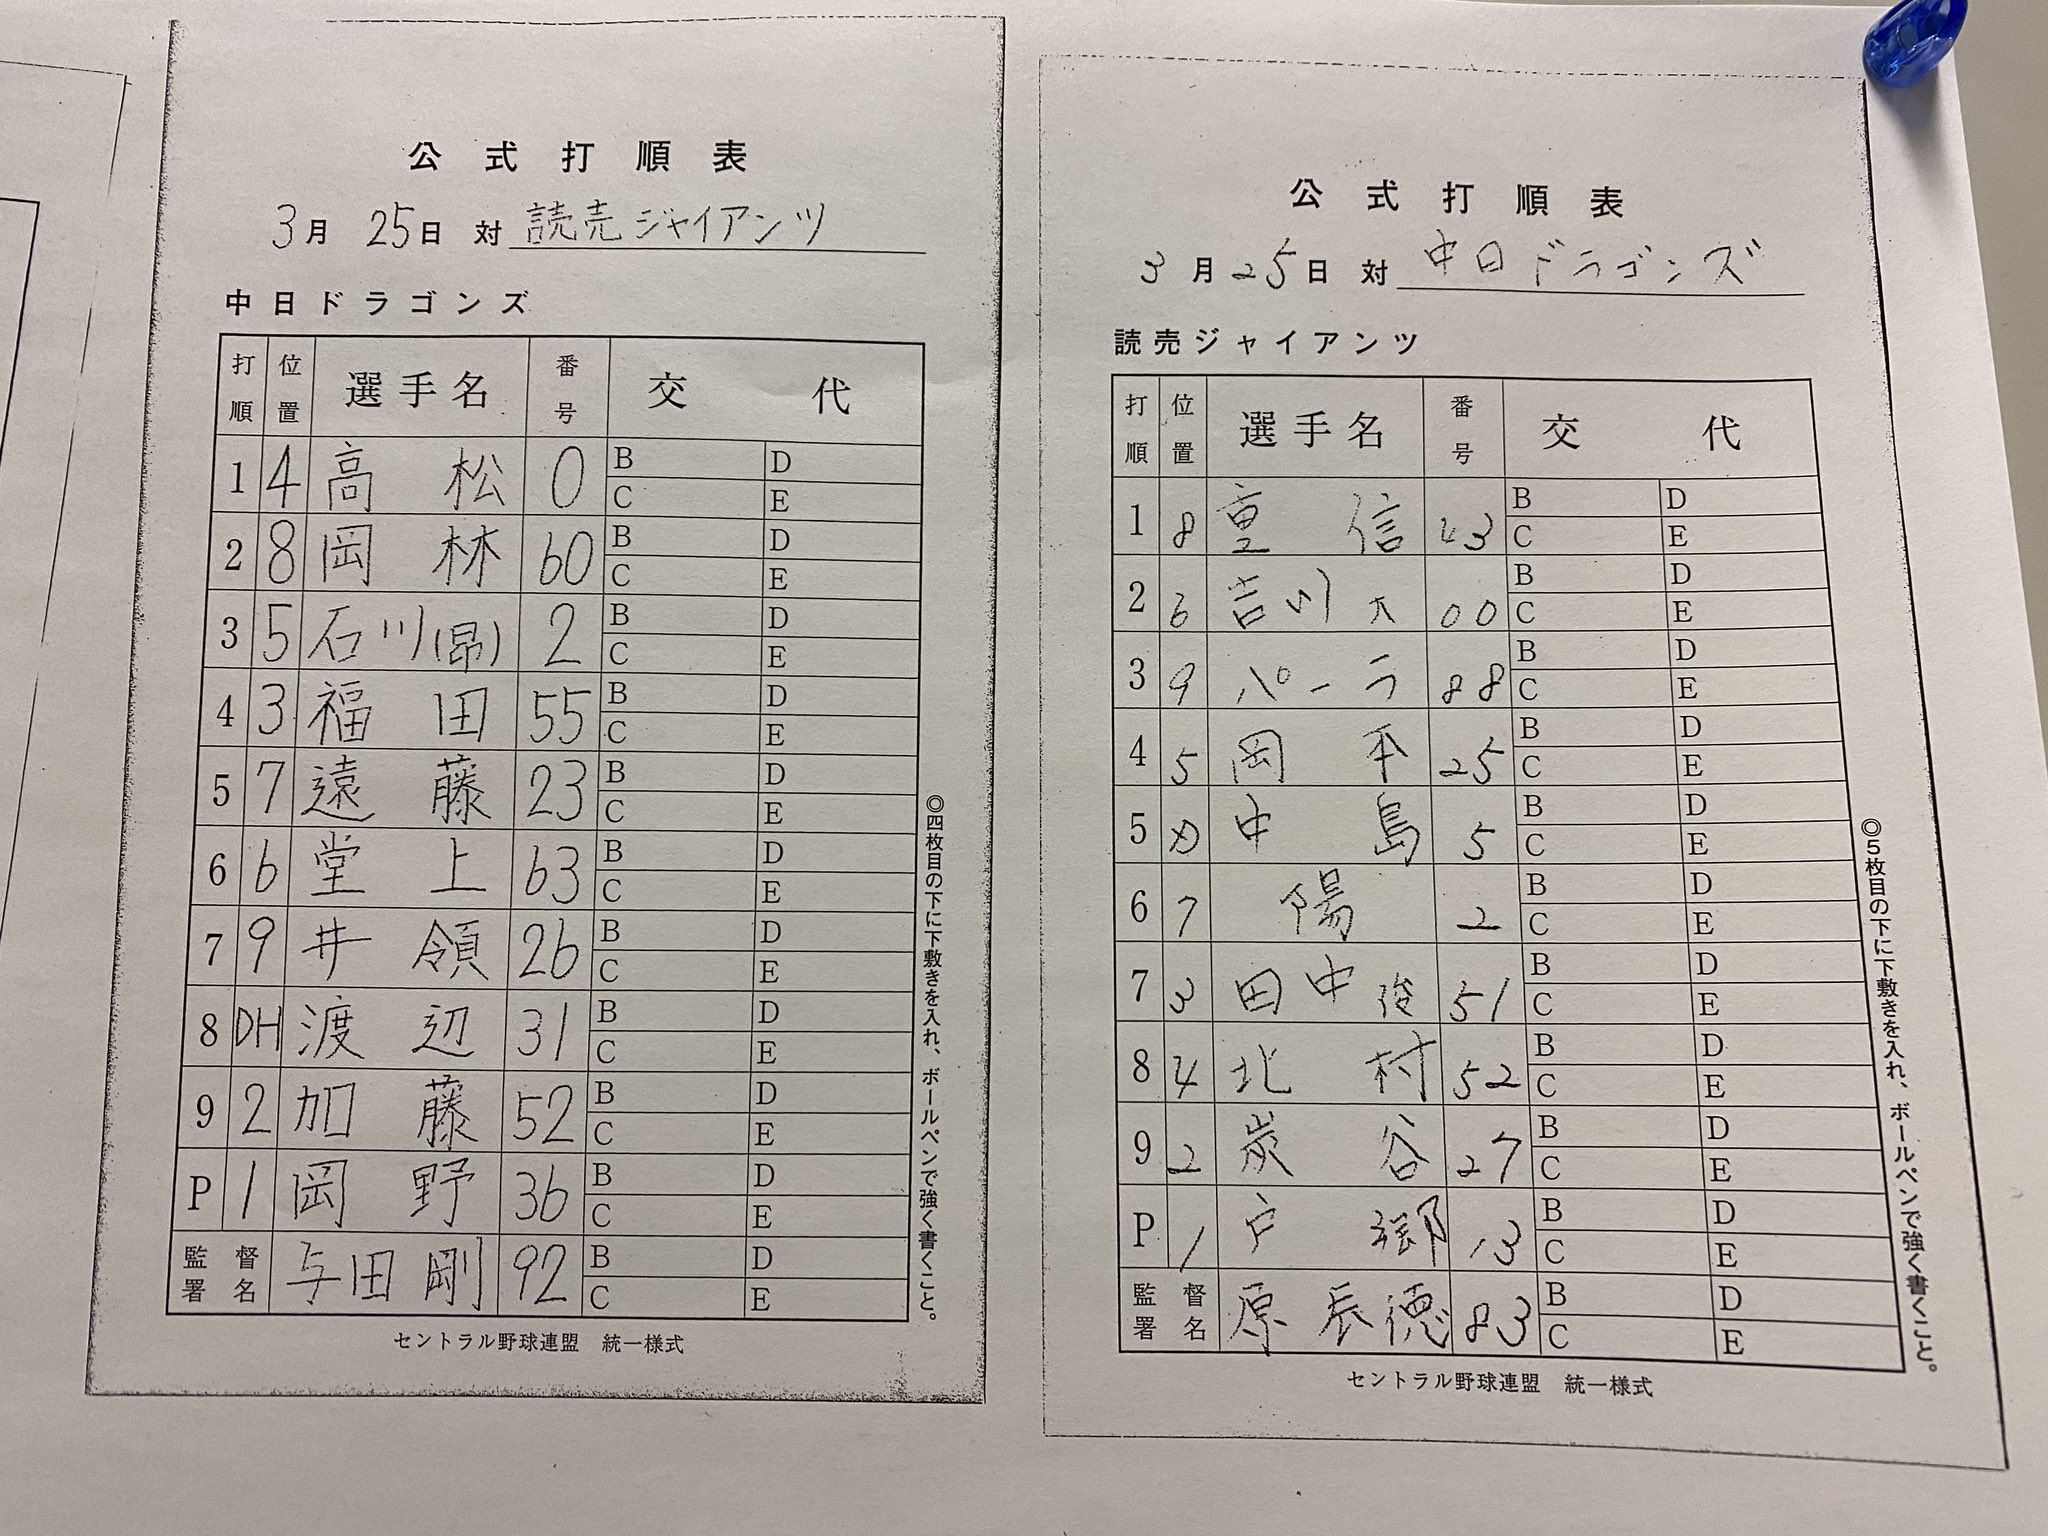 公式打順表
3月 25日 対 読売ジャイアンツ
中日ドラゴンズ
打順 位置 選手名 番号 交代
1 4 高松 0 B D
C E
2 8 岡林 60 B D
C E
3 5 石川(昂) 2 B D
C E
4 3 福田 55 B D
C E
5 7 遠藤 23 B D
C E
6 6 堂上 63 B D
C E
7 9 井領 26 B D
C E
8 DH 渡辺 31 B D
C E
9 2 加藤 52 B D
C E
P 1 岡野 36 B D
C E
監督署名 与田剛 92 B D
C E
セントラル野球連盟 統一様式
◎四枚目の下に下敷きを入れ、ボールペンで強く書くこと。
公式打順表
3月25日 対 中日ドラゴンズ
読売ジャイアンツ
打順 位置 選手名 番号 交代
1 8 重信 43 B D
C E
2 6 吉川大 00 B D
C E
3 9 パーラ 88 B D
C E
4 5 岡本 25 B D
C E
5 D 中島 5 B D
C E
6 7 陽 2 B D
C E
7 3 田中俊 51 B D
C E
8 4 北村 52 B D
C E
9 2 炭谷 27 B D
C E
P 1 戸郷 13 B D
C E
監督署名 原辰徳 83 B D
C E
セントラル野球連盟 統一様式
◎5枚目の下に下敷きを入れ、ボールペンで強く書くこと。